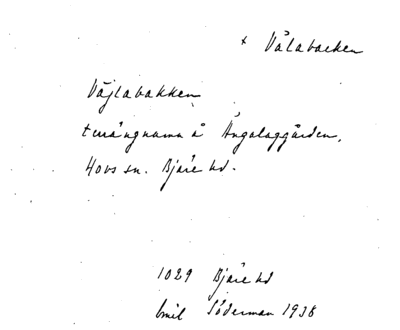 + Vålabacken
Väjlabakken
terrängnamn å Ängalaggården,
Hovs sn. Bjäre hd.
1029 Bjäre hd
Emil Söderman 1938